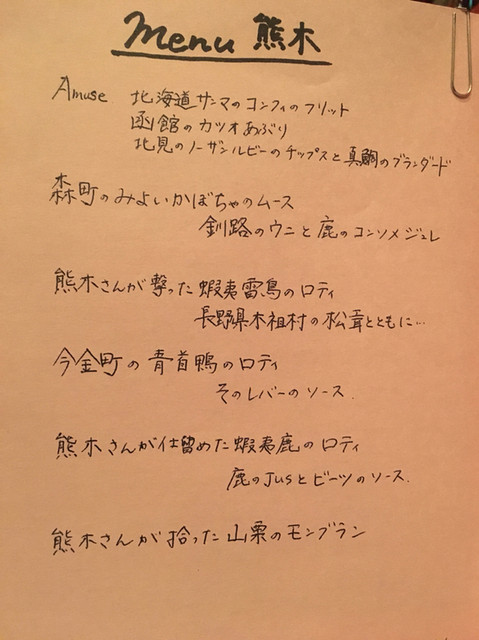 Menu 熊木
Amuse 北海道サンマのコンフィのフリット
函館のカツオあぶり
北見のノーザンルビーのチップスと真鯛のブランダード
森町のみよいかぼちゃのムース
釧路のウニと鹿のコンソメジュレ
熊木さんが撃った蝦夷雷鳥のロティ
長野県木祖村の松茸とともに…
今金町の青首鴨のロティ
そのレバーのソース.
熊木さんが仕留めた蝦夷鹿のロティ
鹿のJusとビーツのソース.
熊木さんが拾った山栗のモンブラン